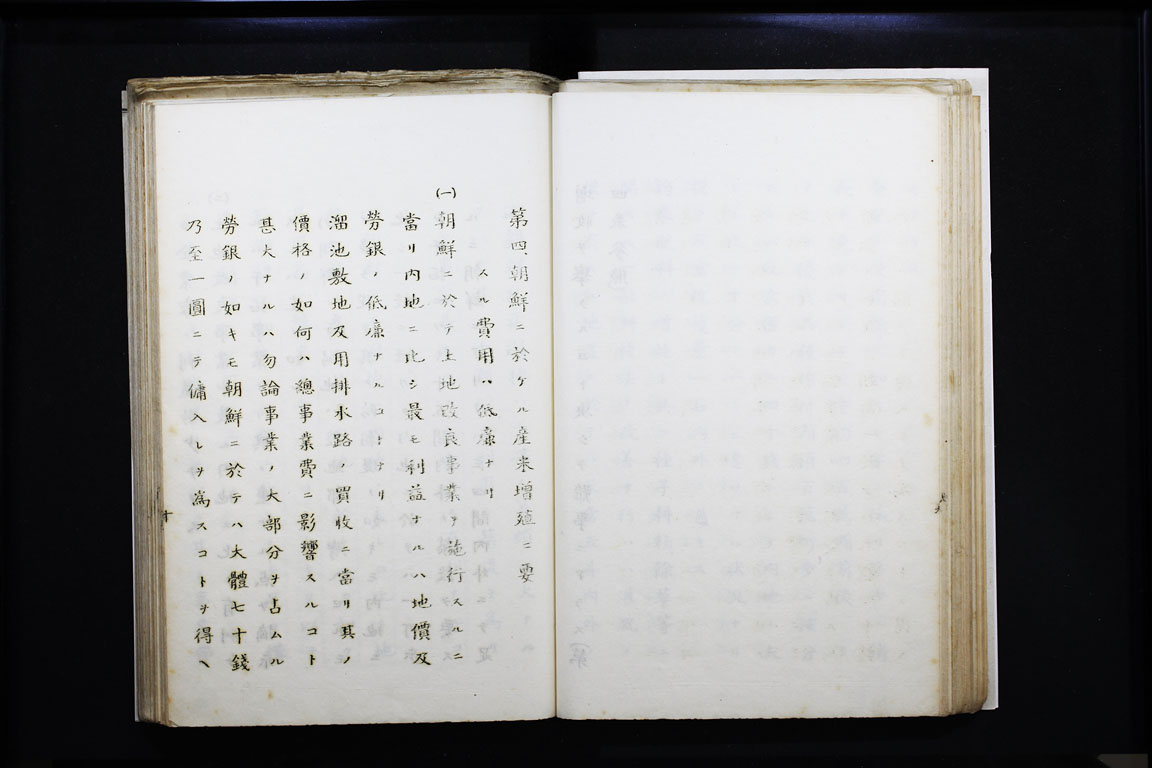 第四、朝鮮ニ於ケル産米増殖ニ要
スル費用ハ低廉ナリ
(一)朝鮮ニ於テ土地改良事業ヲ施行スルニ
當リ内地ニ比シ最モ利益ナルハ地價及
勞銀ノ低廉ナルコトナリ
溜池敷地及用排水路ノ買收ニ當リ其ノ
價格ノ如何ハ總事業費ニ影響スルコト
甚大ナルハ勿論事業ノ大部分ヲ占ムル
勞銀ノ如キモ朝鮮ニ於テハ大體七十錢
乃至一圓ニテ傭入レヲ為スコトヲ得ヘ